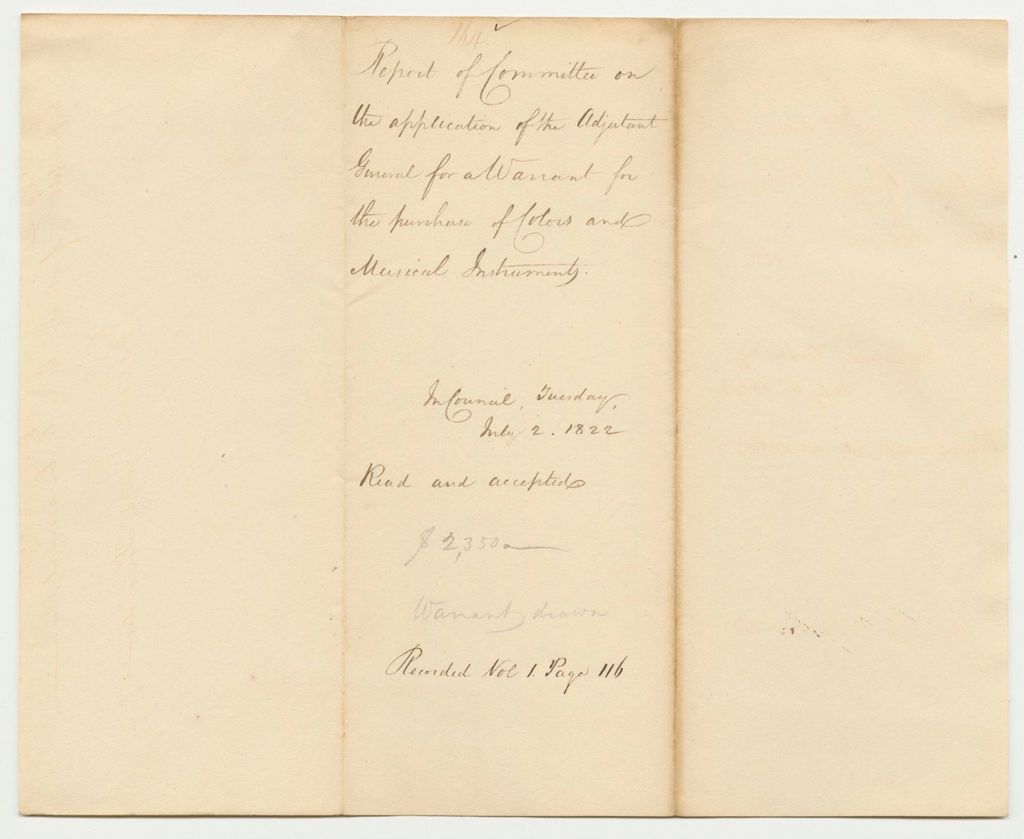 164
Report of Committee on
the application of the Adjutant
General for a Warrant for
the purchase of Colors and
Musical Instruments.
In Council, Tuesday,
July 2. 1822
Read and accepted
$ 2,350.
Warrant drawn
Recorded Vol 1. Page 116